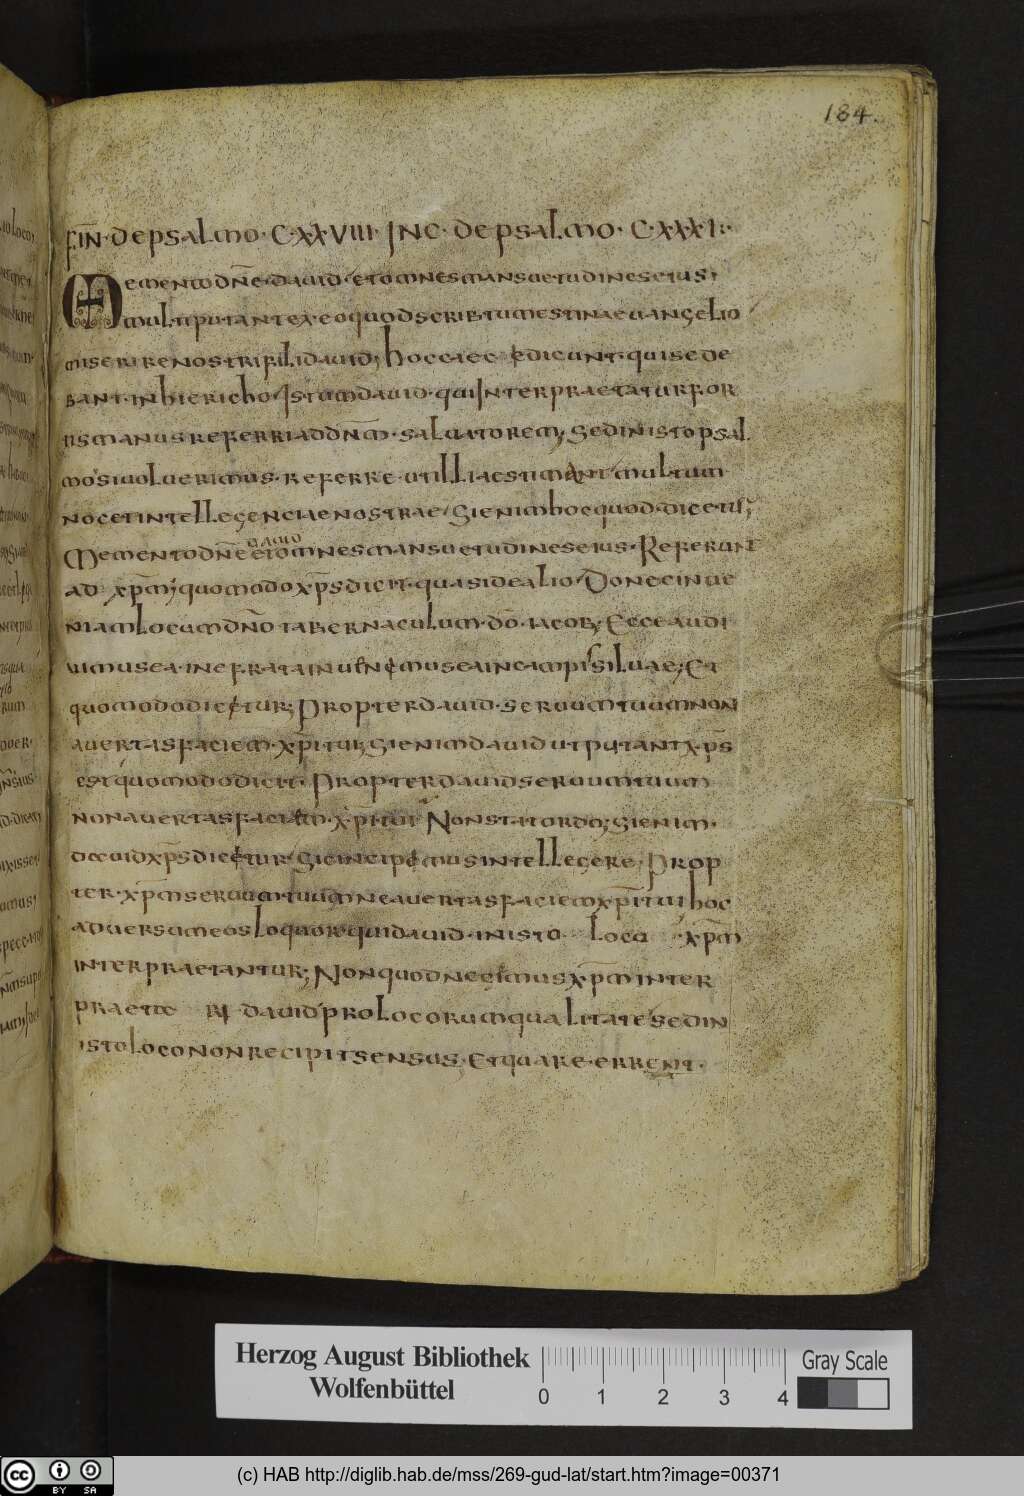 184.
FIN̄·DEPSALMO·CXXVIII·INC·DEPSALMO·CXXXI:·
MEMENTO DN̄E·DAVID·ET OMNES MANSUETUDINES EIUS;
MULTI PUTANT EX·EO QUOD SCRIBTUM EST IN AEUANGELIO
MISERIRE NOSTRI FILI DAVID; HOC CAEC DICUNT·QUI SEDE
BANT·IN HIERICHO·ISTUM DAVID·QUI INTERPRAETATUR FOR
TIS MANUS REFERRI AD DN̄M·SALUATOREM; SED IN ISTO PSAL
MO SI VOLUERIMUS·REFERRE·UT ILLI AESTIMANT MULTUM
NOCET INTELLEGENCIAE NOSTRAE; SI ENIM HOC QUOD·DICETUR;
DAVID
MEMENTO DN̄E ET OMNES MANSUETUDINES EIUS·REFERUNT
AD XP̄M; QUOMODO XP̄S DICIT·QUASI DE ALIO; DONEC INUE
NIAM LOCUM DN̄O TABERNACULUM·DŌ·IACOB; ECCE AUDI
UIMUS EA·IN EFRATA INUENIMUS EA IN CAMPIS SILUAE; ET
QUOMODO DICETUR; PROPTER DAVID·SERUUM TUUM NON
AUERTAS FACIEM·XP̄I TUI; SI ENIM DAVID UT PUTANT XP̄S
EST QUOMODO DICIT·PROPTER DAVID SERUUM TUUM
NON AUERTAS FACIEM·XP̄I TUI NON STAT ORDO; SI ENIM·
DAVID XP̄S DICETUR SIC INCIPIMUS INTELLEGERE; PROP
TER·XP̄M SERUUM TUUM NE AUERTAS FACIEM XP̄I TUI HOC
ADUERSUM EOS LOQUOR QUI DAVID·IN ISTO LOCO XP̄M
INTERPRAETANTUR; NON QUOD NEGEMUS XP̄M INTER
PRAETA RI DAVID PRO LOCORUM QUALITATE SED IN
ISTO LOCO NON RECIPIT SENSUS·ET QUARE·ERRENT·
Herzog August Bibliothek
Wolfenbüttel
0 1 2 3 4
Gray Scale
cc BY SA
(c) HAB http://diglib.hab.de/mss/269-gud-lat/start.htm?image=00371